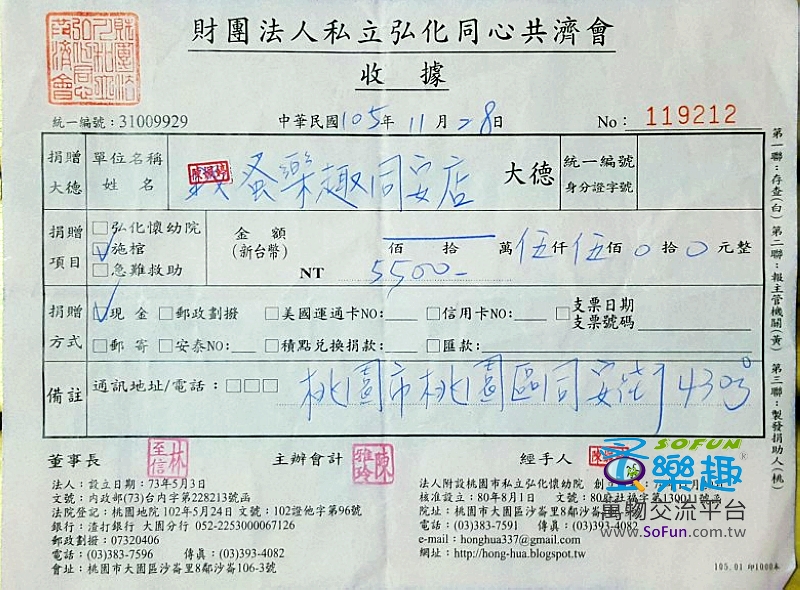 財團法人私立弘化同心共濟會
收據
統一編號：31009929 中華民國105年11月28日 No：119212
捐贈大德 單位名稱 姓名 蚤樂趣同安店 大德 統一編號 身分證字號
捐贈項目 □弘化懷幼院 ☑施棺 □急難救助 金額（新台幣） 佰 拾 萬 伍仟 伍佰 0拾 0元整
NT 5500-
捐贈方式 ☑現金 □郵政劃撥 □美國運通卡NO： □信用卡NO： □支票日期 支票號碼
□郵寄 □安泰NO： □積點兌換捐款： □匯款：
備註 通訊地址/電話：□□□ 桃園市桃園區同安街430號
董事長 林至信 主辦會計 陳雅玲 經手人
法人：設立日期：73年5月3日
文號：內政部(73)台內字第228213號函
法院登記：桃園地院 102年5月24日 文號：102證他字第96號
銀行：渣打銀行 大園分行 052-2253000067126
郵政劃撥：07320406
電話：(03)383-7596 傳真：(03)393-4082
會址：桃園市大園區沙崙里8鄰沙崙106-3號
法人附設桃園市私立弘化懷幼院
核准設立：80年8月1日 文號：80府社福字第130011號函
院址：桃園市大園區沙崙里8鄰沙崙
電話：(03)383-7591 傳真：(03)393-4082
e-mail：honghua337@gmail.com
網址：http://hong-hua.blogspot.tw
第一聯：存查(白) 第二聯：報主管機關(黃) 第三聯：製發捐助人(桃)
105.01 印1000本
SOFUN
蚤樂趣
萬物交流平台
www.SoFun.com.tw